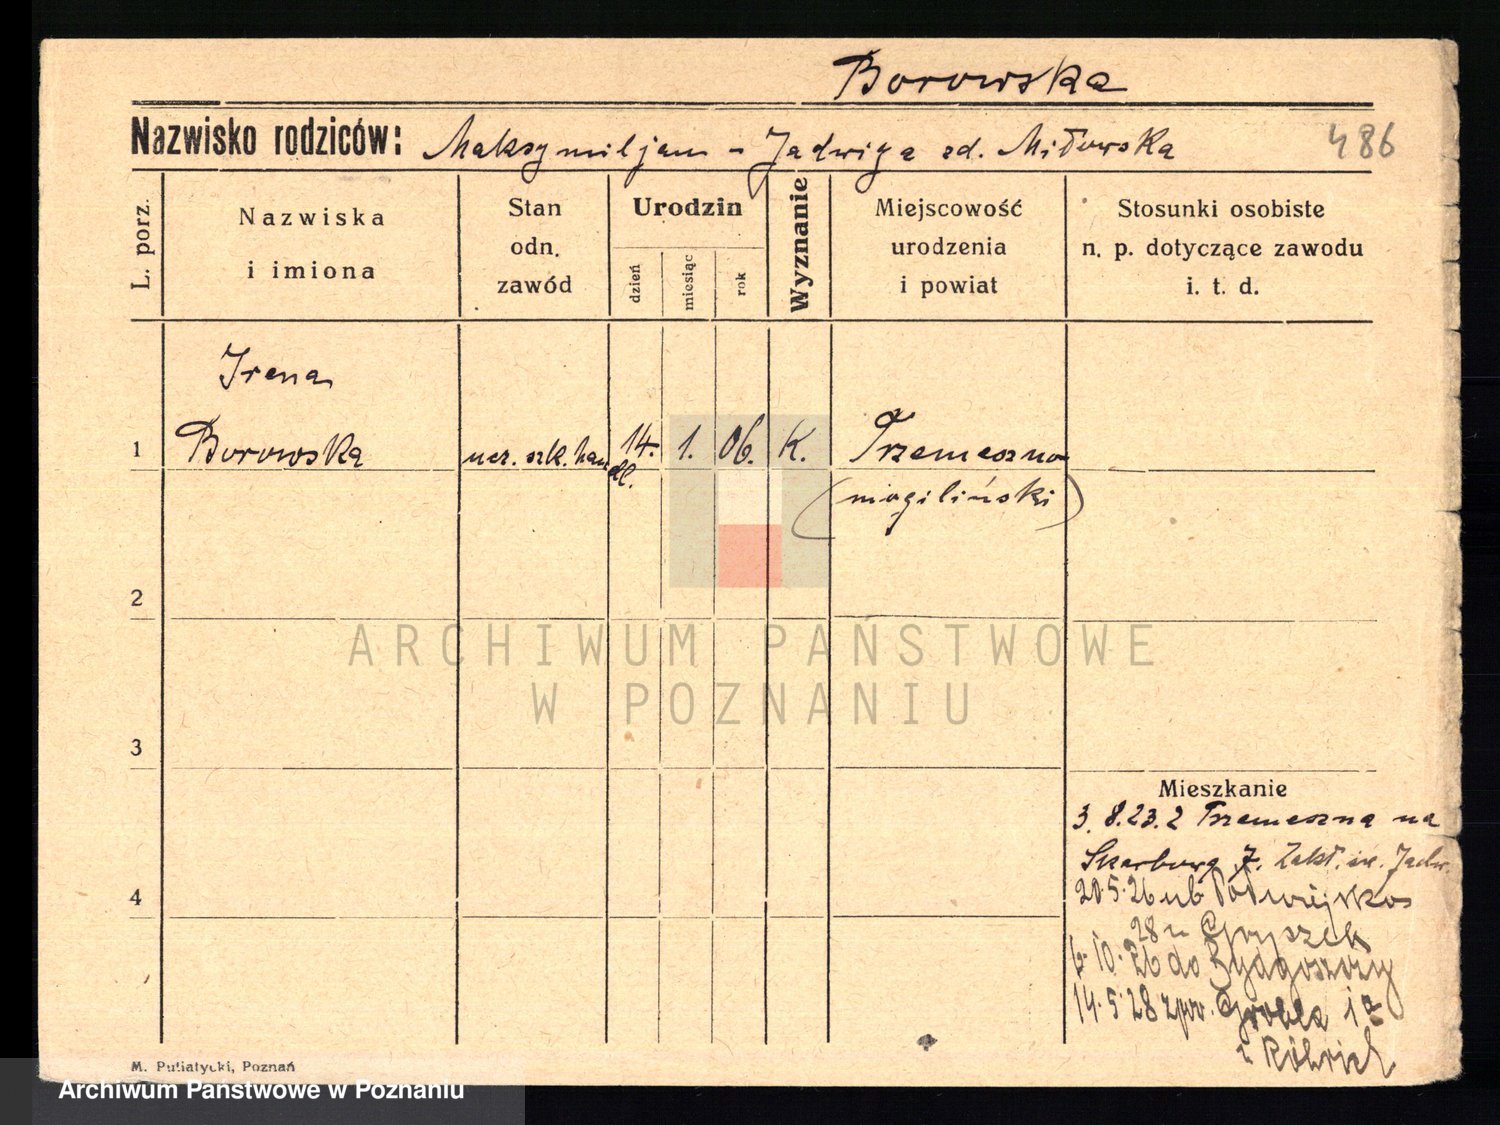 Borowska
Nazwisko rodziców: Maksymiljan - Jadwiga zd. Miłowska
486
L. porz.
Nazwiska
i imiona
Stan
odn.
zawód
Urodzin
dzień
miesiąc
rok
Wyznanie
Miejscowość
urodzenia
i powiat
Stosunki osobiste
n. p. dotyczące zawodu
i. t. d.
Irena
1 Borowska ucz. szk. han 14. 1. 06. K. Trzemeszno
dl. (mogiliński)
2
ARCHIWUM PAŃSTWOWE
W POZNANIU
3
Mieszkanie
3. 8.23. z Trzemeszna na
Skarbową 7. Zakł. św. Jadw.
4
20.5.26 ub Półwiejska
28 u
6.10.26 do Bydgoszczy
14.5.28 zpow. Grobla 1a
M. Putiatycki, Poznań
Archiwum Państwowe w Poznaniu